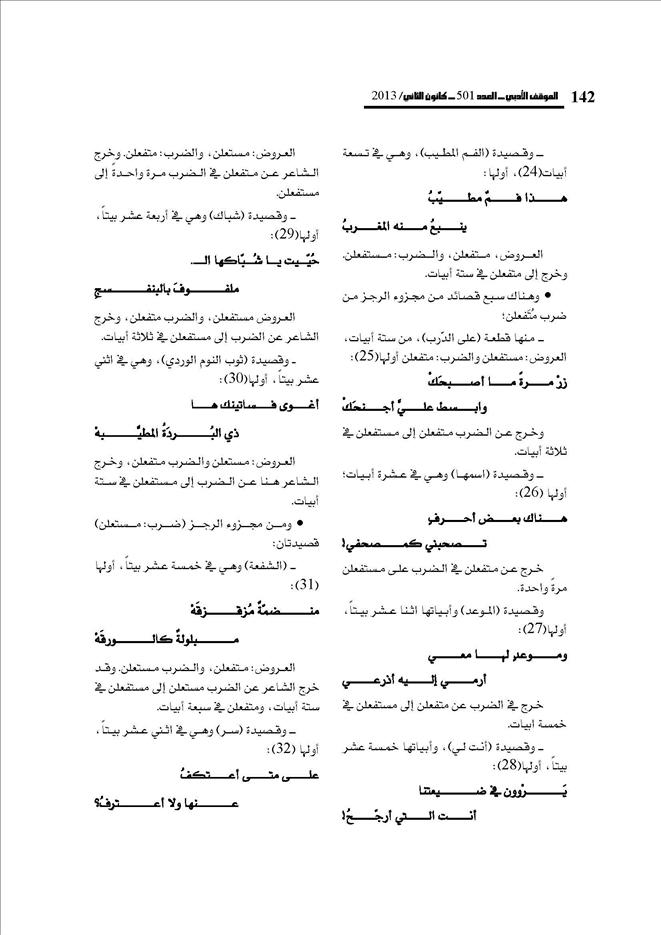 142 الموقف الأدبي ــ العدد 501 ــ كانون الثاني/ 2013
ــ وقصيدة (الفم المطيب)، وهي في تسعة
أبيات(24)، أولها:
هــــذا فــــمٌ مطــــيّبُ
ينــــبعُ مــــنه المغــــربُ
العــروض، متــفعلن، والــضرب: مــستفعلن.
وخرج إلى متفعلن في ستة أبيات.
● وهــناك سبع قصائد من مجزوء الرجز من
ضرب مُتَفعلن؛
ــ منها قطعة (على الدّرب)، من ستة أبيات،
العروض: مستفعلن والضرب: متفعلن أولها(25):
زرْ مــــرةً مــــا أصــــبحكْ
وابــــسط علــــيَّ أجــــنحكْ
وخرج عن الضرب متفعلن إلى مستفعلن في
ثلاثة أبيات.
ــ وقصيدة (اسمها) وهي في عشرة أبيات؛
أولها (26):
هــــناك بعــــض أحــــرفٍ
تــــصحبني كمــــصحفي!
خرج عن متفعلن في الضرب على مستفعلن
مرةً واحدة.
وقصيدة (الموعد) وأبياتها اثنا عشر بيتاً،
أولها(27):
ومــــوعدٍ لهــــا معــــي
أرمــــي إلــــيه أذرعــــي
خرج في الضرب عن متفعلن إلى مستفعلن في
خمسة أبيات.
ــ وقصيدة (أنت لي)، وأبياتها خمسة عشر
بيتاً، أولها(28):
يَــــرْوون في ضــــيعتنا
أنــــت الــــتي أرجّــــحُ!
العروض: مستعلن، والضرب: متفعلن. وخرج
الشاعر عن متفعلن في الضرب مرة واحدةً إلى
مستفعلن.
ــ وقصيدة (شباك) وهي في أربعة عشر بيتاً،
أولها(29):
حُيّــــيت يــــا شُــــبّاكها الــــ.
ملفــــوفَ بالبنفــــسجِ
العروض مستفعلن، والضرب متفعلن، وخرج
الشاعر عن الضرب إلى مستفعلن في ثلاثة أبيات.
ــ وقصيدة (ثوب النوم الوردي)، وهي في اثني
عشر بيتاً، أولها(30):
أغــــوى فــــساتينك هــــا
ذي البُــــردَةُ المطيَّــــبهْ
العروض: مستعلن والضرب متفعلن، وخرج
الشاعر هنا عن الضرب إلى مستفعلن في ستة
أبيات.
● ومــن مجزوء الرجز (ضــرب: مــستعلن)
قصيدتان:
ــ (الشفعة) وهي في خمسة عشر بيتاً، أولها
(31):
منــــضمّةٌ مُزقــــزقَهْ
مــــبلولةٌ كالــــورقَهْ
العروض: متفعلن، والضرب مستعلن. وقد
خرج الشاعر عن الضرب مستعلن إلى مستفعلن في
ستة أبيات، ومتفعلن في سبعة أبيات.
ــ وقصيدة (سر) وهي في اثني عشر بيتاً،
أولها (32):
علــــى متــــى أعــــتكفُ
عــــنها ولا أعــــترفُ؟